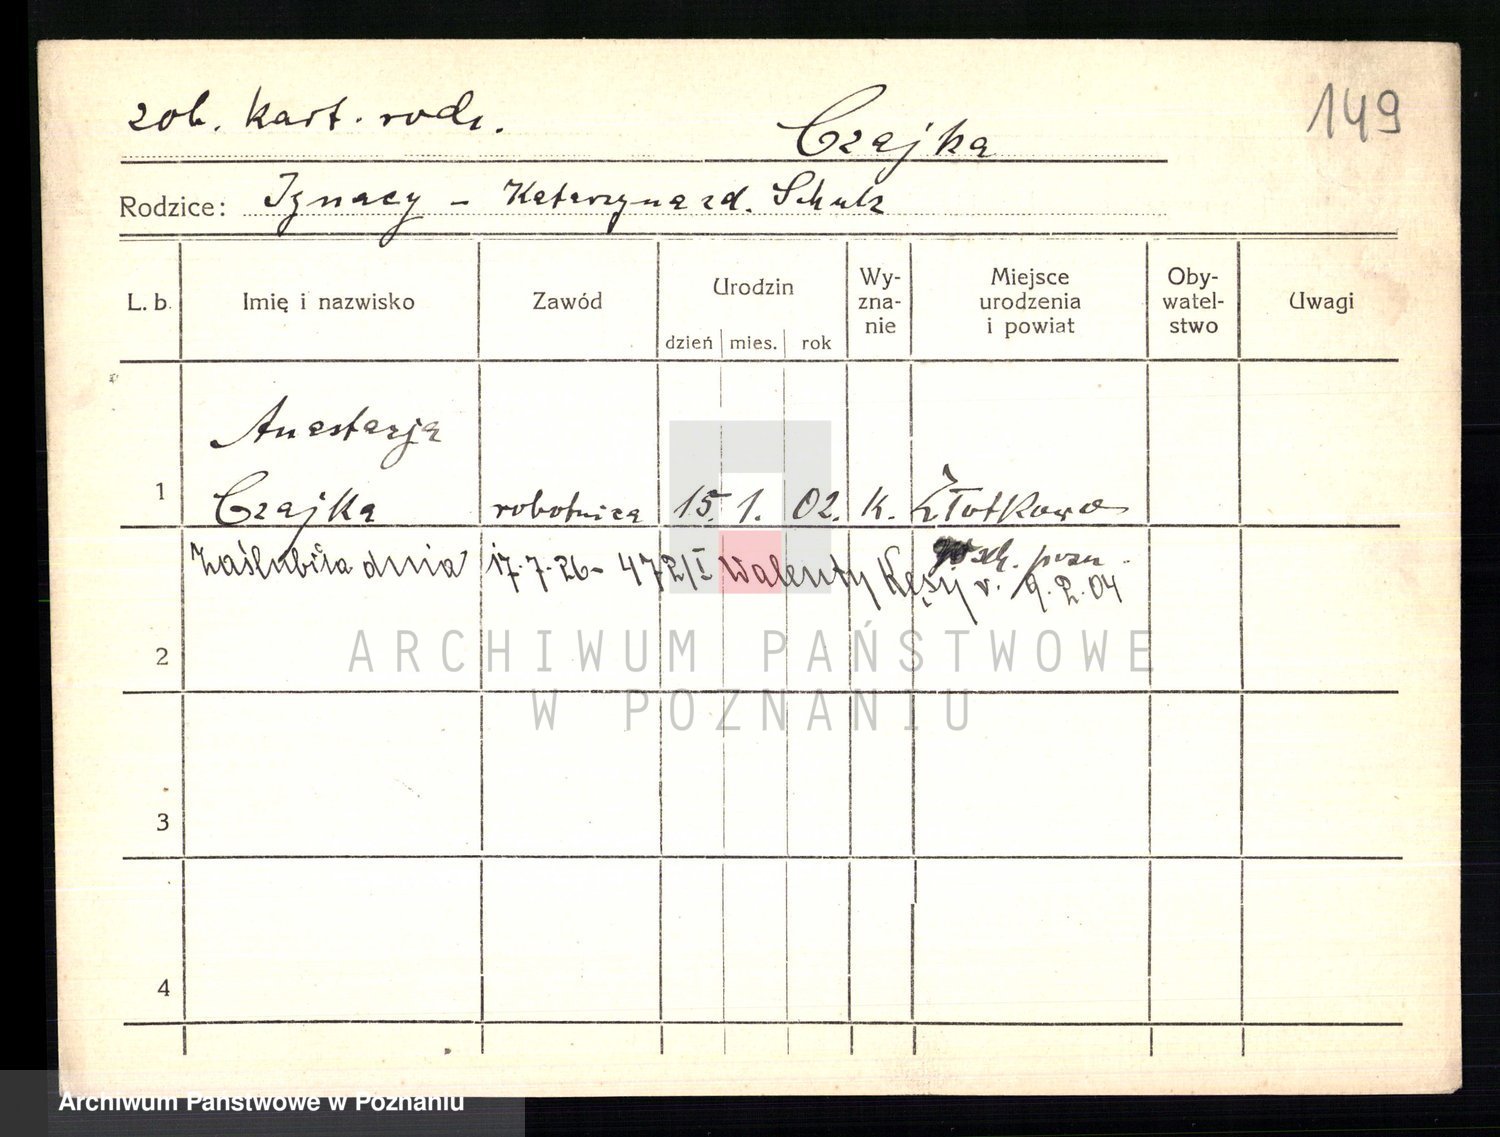 zob. kart. rodz.
Czajka
149
Rodzice: Ignacy - Katarzyna zd. Schulz
L. b. Imię i nazwisko Zawód Urodzin dzień mies. rok Wy-zna-nie Miejsce urodzenia i powiat Oby-watel-stwo Uwagi
Anastazja
1 Czajka robotnica 15. 1. 02. K. Złotkowo
pow. zch. pozn.
Zaślubiła dnia 17.7.26 - 472/I Walenty Kęsy v. 9.2.04
2
ARCHIWUM PAŃSTWOWE
W POZNANIU
3
4
Archiwum Państwowe w Poznaniu